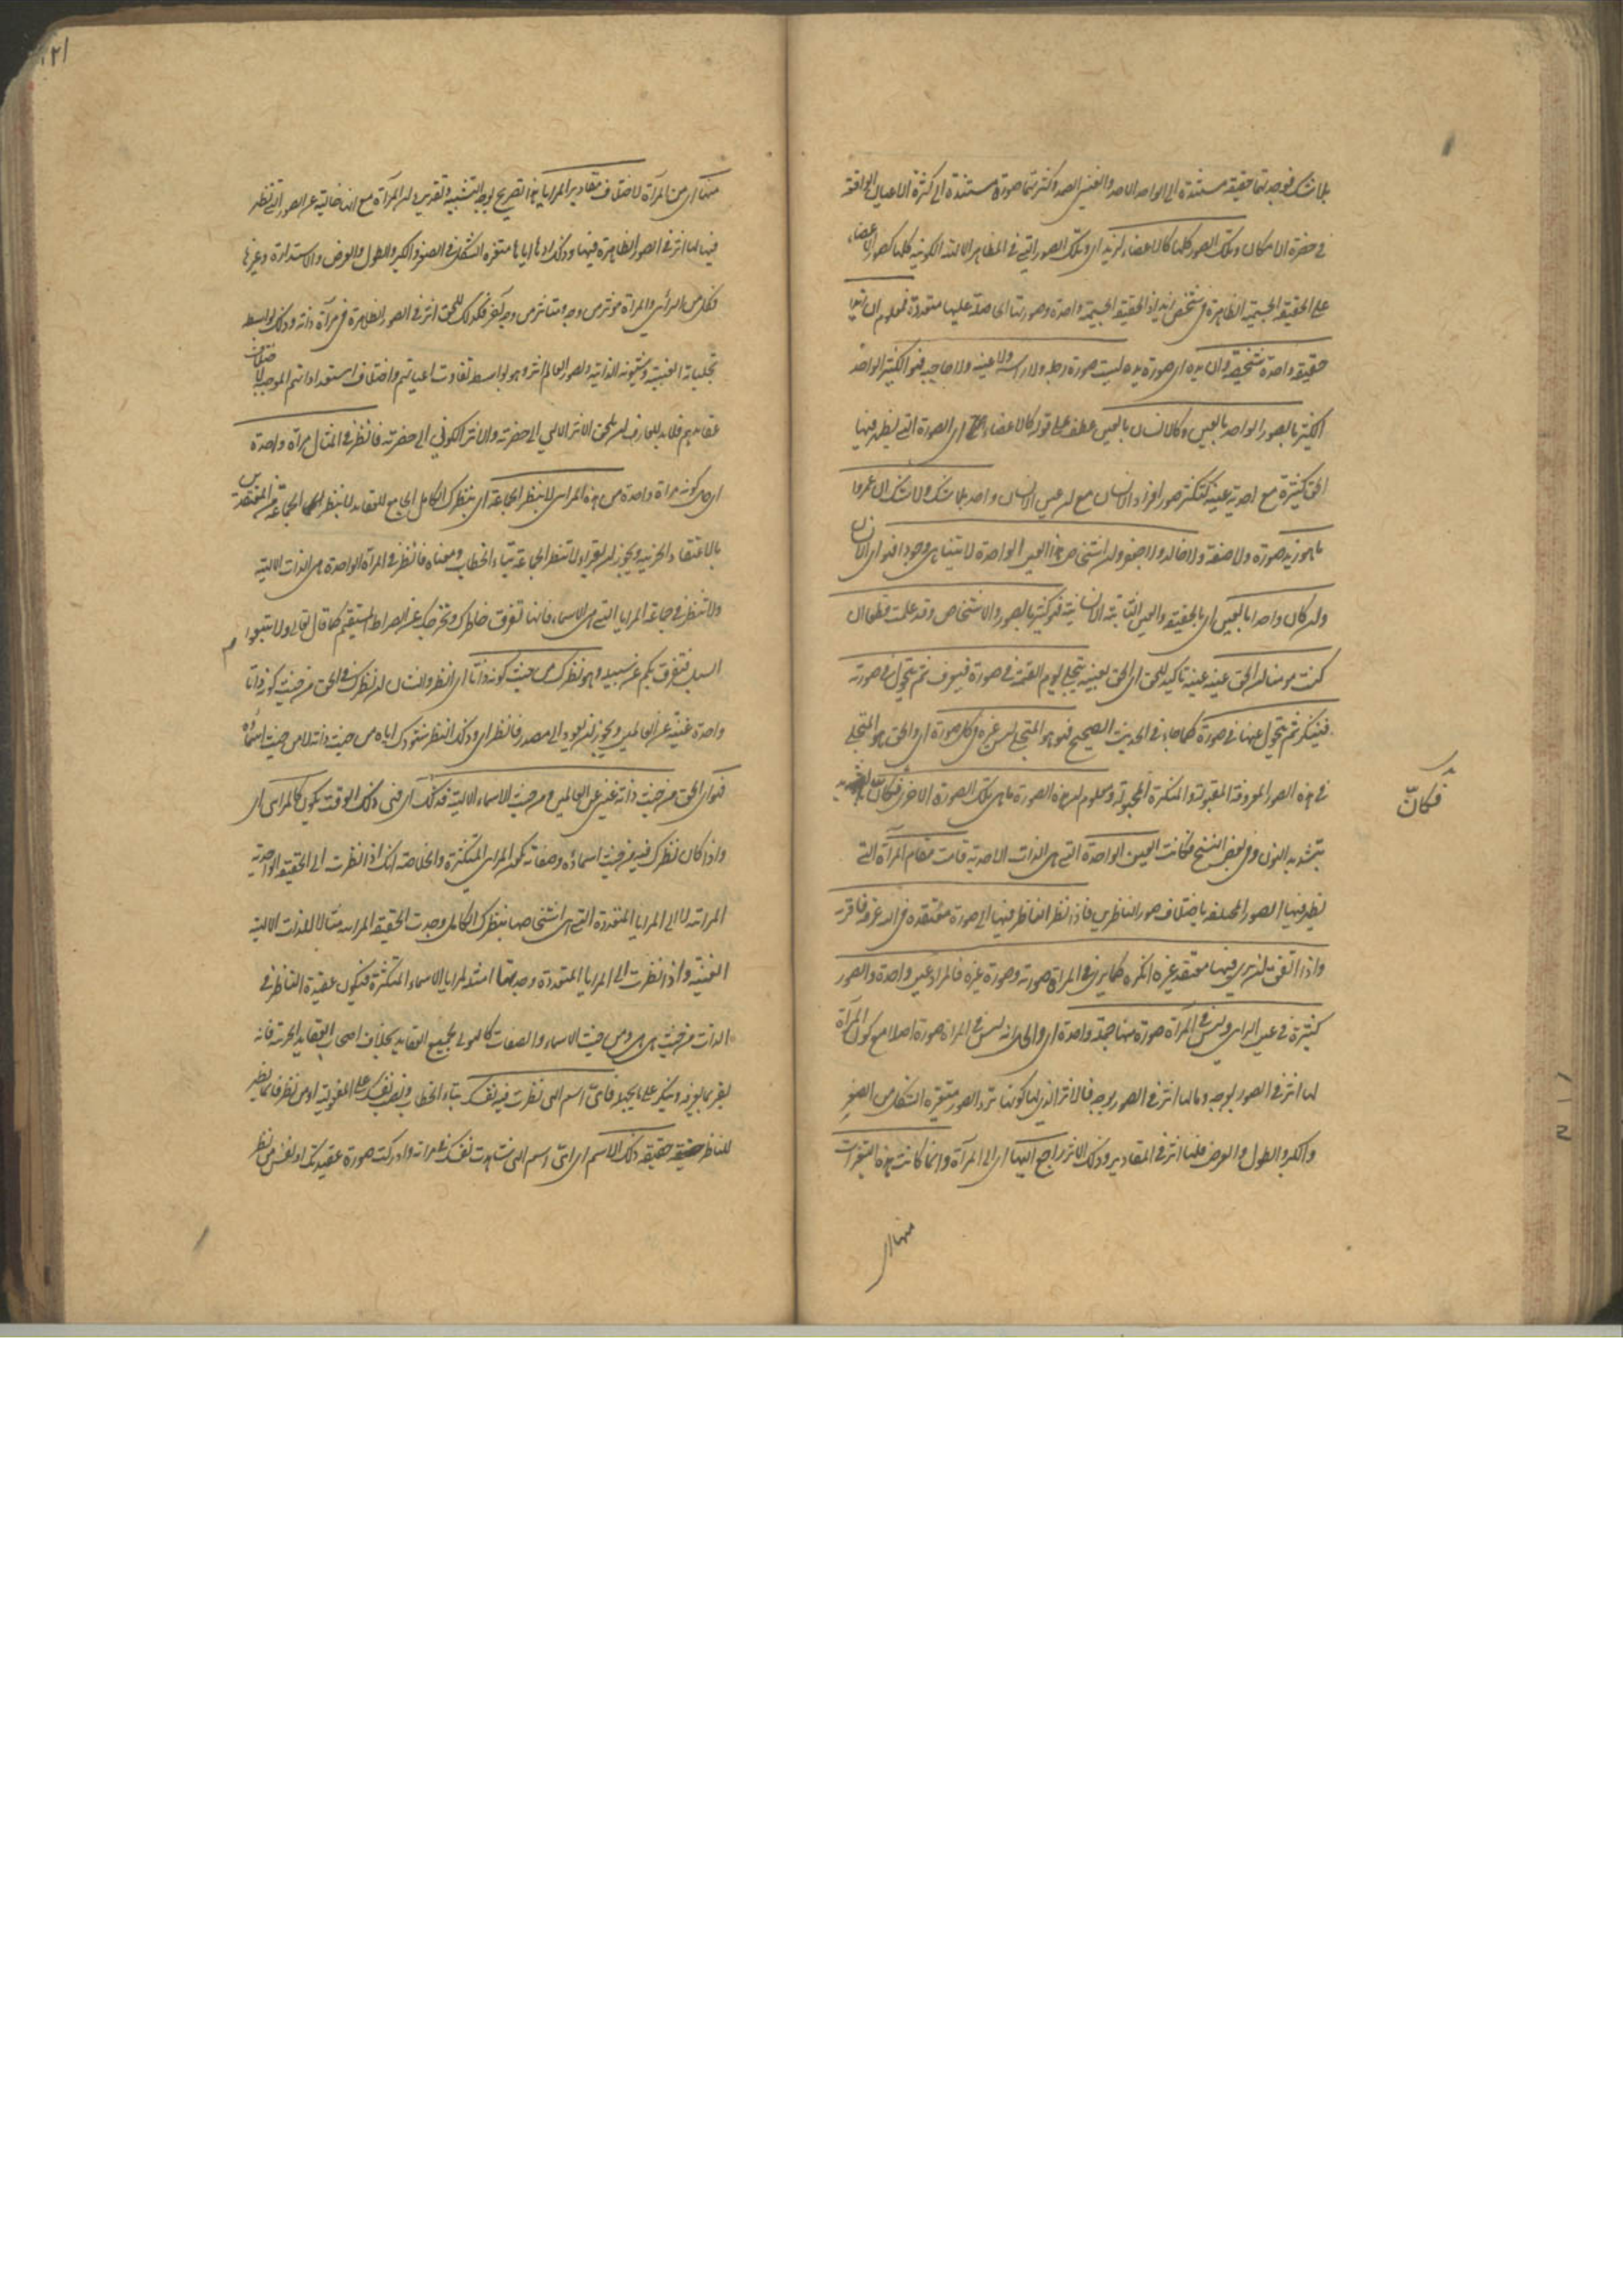 بلا شك فوجدتها حقيقة مستندة الى الواحد الاحد والعين الصمد وكثرتها صورة مستندة الى كثرة الاعيان الواقعة
في حضرة الامكان وتلك الصور كلها كالاعضاء لزيد اى وتلك الصور التي في المظاهر الالهية الكونية كلها كصور الاعضاء
على الحقيقة الجسمية الظاهرة في شخص زيد اذ الحقيقة الجسمية واحدة وصورتها الحاصلة عليها متعددة فمعلوم ان زيدا
حقيقة واحدة شخصية وان يده اى صورة يده ليست صورة رجله ولا راسه ولا عينه ولا حاجبه فهو الكثير الواحد
الكثير بالصور الواحد بالعين وكالانسان بالعين عطف على قوله كالاعضاء اى الصورة التي يظهر فيها
الحق كثيرة مع احدية عينه كتكثر صور افراد الانسان مع ان عين الانسان واحد بلا شك ولا نشك ان عمروا
ما هو زيد صورة ولا صفة ولا خالد ولا جعفر وان اشخاص هذا العين الواحدة لا يتناهى وجودا فهو اى الانسان
وان كان واحدا بالعين اى بالحقيقة والعين الثابتة الانسانية فهو كثير بالصور والاشخاص وقد علمت قطعا ان
كنت مومنا ان الحق عينه عينه تاكيد للحق اى الحق بعينه يتجلى يوم القيمة في صورة فيعرف ثم يتحول في صورة
فينكر ثم يتحول عنها في صورة كما جاء في الحديث الصحيح فهو هو المتجلى ليس غيره في كل صورة اى والحق هو المتجلى
في هذه الصور المعروفة المقبولة والمنكرة المجهولة ومعلوم ان هذه الصورة ما هي تلك الصورة الاخرى فكانّ
فكانّ
بتشديد النون وفي بعض النسخ فكانت العين الواحدة التي هى الذات الاحدية قامت مقام المرآة التي
يظهر فيها الصور المختلفة باختلاف صور الناظرين فاذا نظر الناظر فيها الى صورة معتقده في الله عرفه فاقر به
واذا اتفق ان يرى فيها معتقد غيره انكره كما يرى في المرآة صورته وصورة غيره فالمرآة عين واحدة والصور
كثيرة في عين الرائي وليس في المرآة صورة منها جملة واحدة اى والحال انه ليس في المرآة صورة اصلا مع كون المرآة
لها اثر في الصور بوجه وما لها اثر في الصور بوجه فالاثر الذي لها كونها ترد الصور متغيرة الشكل من الصغر
والكبر والطول والعرض فلها اثر في المقادير وذلك الاثر راجع اليها اى الى المرآة وانما كانت هذه التغيرات
منها اى
منها اى من المرآة لاختلاف مقادير المرايا هذا تصريح لوجه التشبيه وتقديره ان المرآة مع انها خالية عن الصور التي تظهر
فيها لها اثر في الصور الظاهرة فيها وذلك ردها اياها متغيرة الشكل في الصغر والكبر والطول والعرض والاستدارة وغيرها
فكل من الرائي والمرآة مؤثر من وجه ومتاثر من وجه آخر فكذلك للحق اثر في الصور الظاهرة في مرآة ذاته وذلك بواسطة
تجلياته الغيبية وشئونه الذاتية ولصور العالم اثر وهو بواسطة تفاوت اعيانهم واختلاف استعداداتهم الموجبة لاختلاف
عقايدهم فلابد للعارف ان يلحق الاثر الالهي الى حضرته والاثر الكوني الى حضرته فانظر في المثال مرآة واحدة
اى كونه مرآة واحدة من هذه المرايا لا بنظر الجماعة اى بنظرك الكامل الجامع للعقايد لا بنظر الجماعة من المقتصرين
بالاعتقاد الجزئية ويجوز ان يقراء لا تنظر الجماعة بتاء الخطاب ومعناه فانظر في المرآة الواحدة هى الذات الالهية
ولا تنظر في جماعة المرايا التي هى الاسماء فانها تفرق خاطرك وتخرجك عن الصراط المستقيم كما قال تعالى ولا تتبعوا
السبل فتفرق بكم عن سبيله وهو نظرك من حيث كونه ذاتا اى انظر والشان ان نظرك في الحق من حيث كونه ذاتا
واحدة غنية عن العالمين ويجوز ان يعود الى مصدر فانظر اى وذلك النظر شهودك اياه من حيث ذاته لا من حيث اسمائه
فهو اى الحق من حيث ذاته غني عن العالمين ومن حيث الاسماء الالهية فذلك اى ففي ذلك الوقت يكون كالمرايا اى
واذا كان نظرك فيه من حيث اسمائه وصفاته كون المرايا المتكثرة والخلاصة انك اذا نظرت الى الحقيقة الواحدة
المرآتية لا الى المرايا المتعددة التي هى اشخاصها بنظرك الكامل وجدت الحقيقة المرآتية مثالا للذات الالهية
الغنية واذا نظرت الى المرايا المتعددة وجدتها امثلة لمرايا الاسماء المتكثرة فيكون عقيدة الناظر في
الذات من حيث هى هى ومن حيث الاسماء والصفات كالهيولى لجميع العقايد بخلاف اصحاب العقايد الجزئية فانه
يقر بما يعرفه وينكر على ما يجهله فاىّ اسم الهي نظرت فيه نفسك بتاء الخطاب ونصب نفسك على المفعولية او من نظر فانما يظهر
للناظر حقيقة ذلك الاسم اى اىّ اسم الهي شاهدت نفسك في مرآته وادركت صورة عقيدتك او نفس من نظر